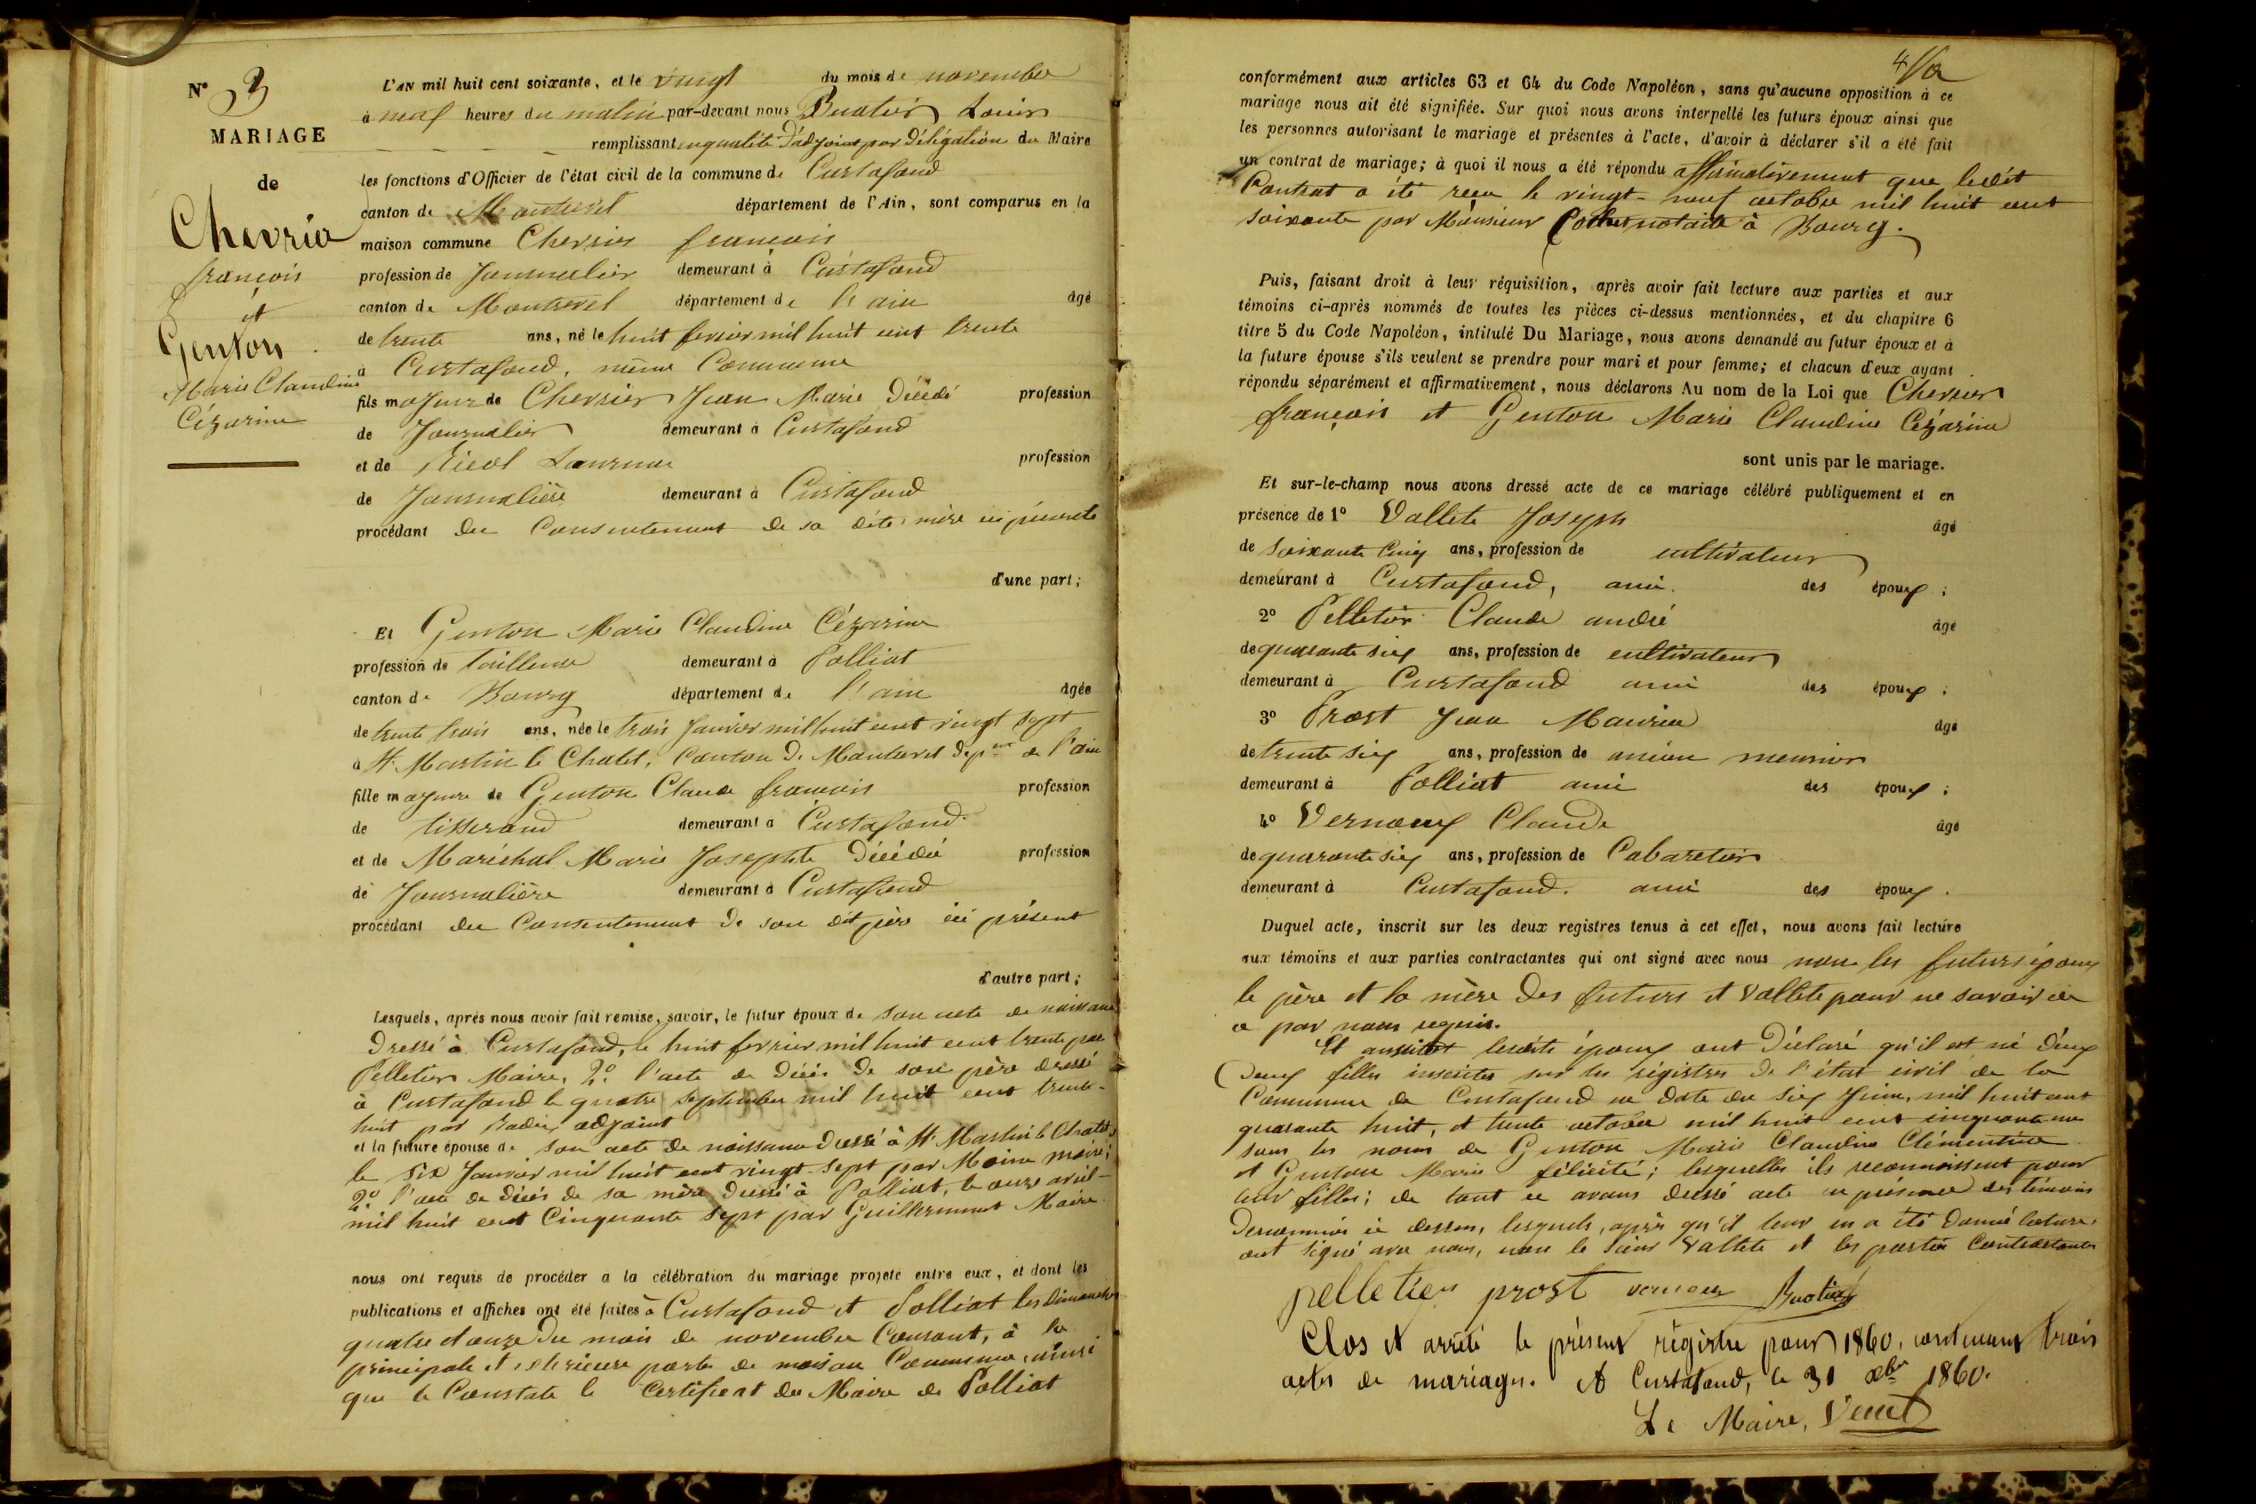 N° 3
MARIAGE
de
Chevrier
françois
et
Genton
Marie Claudine
Cézarine
L'AN mil huit cent soixante, et le vingt du mois de novembre
à neuf heures du matin par-devant nous Buatier Louis
remplissant en qualité d'adjoint par délégation du Maire
les fonctions d'Officier de l'état civil de la commune de Curtafond
canton de Montrevel département de l'Ain, sont comparus en la
maison commune Chevrier françois
profession de Journalier demeurant à Curtafond
canton de Montrevel département de l'ain âgé
de trente ans, né le huit fevrier mil huit cent trente
à Curtafond, même Commune
fils majeur de Chevrier Jean Marie Décédé profession
de Journalier demeurant à Curtafond
et de Laurence profession
de Journalière demeurant à Curtafond
procédant du Consentement de sa dite mère ici présente
d'une part;
Et Genton Marie Claudine Cézarine
profession de tailleuse demeurant à Polliat
canton de Bourg département de l'ain âgée
de trente trois ans, née le trois Janvier mil huit cent vingt sept
à St Martin le Chatel, Canton de Montrevel depent de l'ain
fille majeure de Genton Claude françois profession
de tisserand demeurant à Curtafond
et de Maréchal Marie Josephte Décédée profession
de Journalière demeurant à Curtafond
procédant du Consentement de son dit père ici présent
d'autre part;
Lesquels, après nous avoir fait remise, savoir, le futur époux de son acte de naissance
Dressé à Curtafond, le huit fevrier mil huit cent trente par
Pelletier Maire, 2° l'acte de décès de son père dressé
à Curtafond le quatre septembre mil huit cent trente-
huit par adjoint
et la future épouse de son acte de naissance dressé à St Martin le Chatel
le six Janvier mil huit cent vingt-sept par Moine maire;
2° l'acte de décès de sa mère dressé à Polliat, le onze avril-
mil huit cent Cinquante sept par Guillermet Maire
nous ont requis de procéder à la célébration du mariage projeté entre eux, et dont les
publications et affiches ont été faites à Curtafond et Polliat les dimanches
quatre et onze Du mois de novembre Courant, à la
principale et exterieure porte de maison Commune, ainsi
que le Constate le Certificat du Maire de Polliat
conformément aux articles 63 et 64 du Code Napoléon, sans qu'aucune opposition à ce
mariage nous ait été signifiée. Sur quoi nous avons interpellé les futurs époux ainsi que
les personnes autorisant le mariage et présentes à l'acte, d'avoir à déclarer s'il a été fait
un contrat de mariage; à quoi il nous a été répondu affirmativement que ledit
Contrat a été reçu le vingt-neuf octobre mil huit cent
soixante par Monsieur notaire à Bourg.
Puis, faisant droit à leur réquisition, après avoir fait lecture aux parties et aux
témoins ci-après nommés de toutes les pièces ci-dessus mentionnées, et du chapitre 6
titre 5 du Code Napoléon, intitulé Du Mariage, nous avons demandé au futur époux et à
la future épouse s'ils veulent se prendre pour mari et pour femme; et chacun d'eux ayant
répondu séparément et affirmativement, nous déclarons Au nom de la Loi que Chevrier
françois et Genton Marie Claudine Cézarine
sont unis par le mariage.
Et sur-le-champ nous avons dressé acte de ce mariage célébré publiquement et en
présence de 1° Vallete Joseph âgé
de soixante Cinq ans, profession de cultivateur
demeurant à Curtafond, ami des époux;
2° Pelletier Claude andré âgé
de quarante six ans, profession de cultivateur
demeurant à Curtafond ami des époux;
3° Prost Jean Marie âgé
de trente six ans, profession de ancien meunier
demeurant à Polliat ami des époux;
4° Vernoux Claude âgé
de quarante six ans, profession de Cabaretier
demeurant à Curtafond. ami des époux.
Duquel acte, inscrit sur les deux registres tenus à cet effet, nous avons fait lecture
aux témoins et aux parties contractantes qui ont signé avec nous non les futurs époux
le père et la mère des futurs et Vallete pour ne savoir de
ce par nous requis.
Et aussitot lesdits époux ont Déclaré qu'il est né d'eux
Deux filles inscrites sur les registres de l'état civil de la
Commune de Curtafond en date du six Juin, mil huit cent
quarante huit, et trente octobre mil huit cent cinquante un
sous les noms de Genton Marie Claudine Clémentine
et Genton Marie félicité; lesquelles ils reconnoissent pour
leur filles; de tout ce avons dressé acte en présence des témoins
Denommés ci dessus, lesquels, après qu'il leur en a été donné lecture,
ont signé avec nous, non le sieur Vallete et les parties Contractantes
pelletier prost vernoux Buatier
Clos et arrêté le présent régistre pour 1860, contenant trois
actes de mariages. A Curtafond, le 31 xbre 1860.
Le Maire,